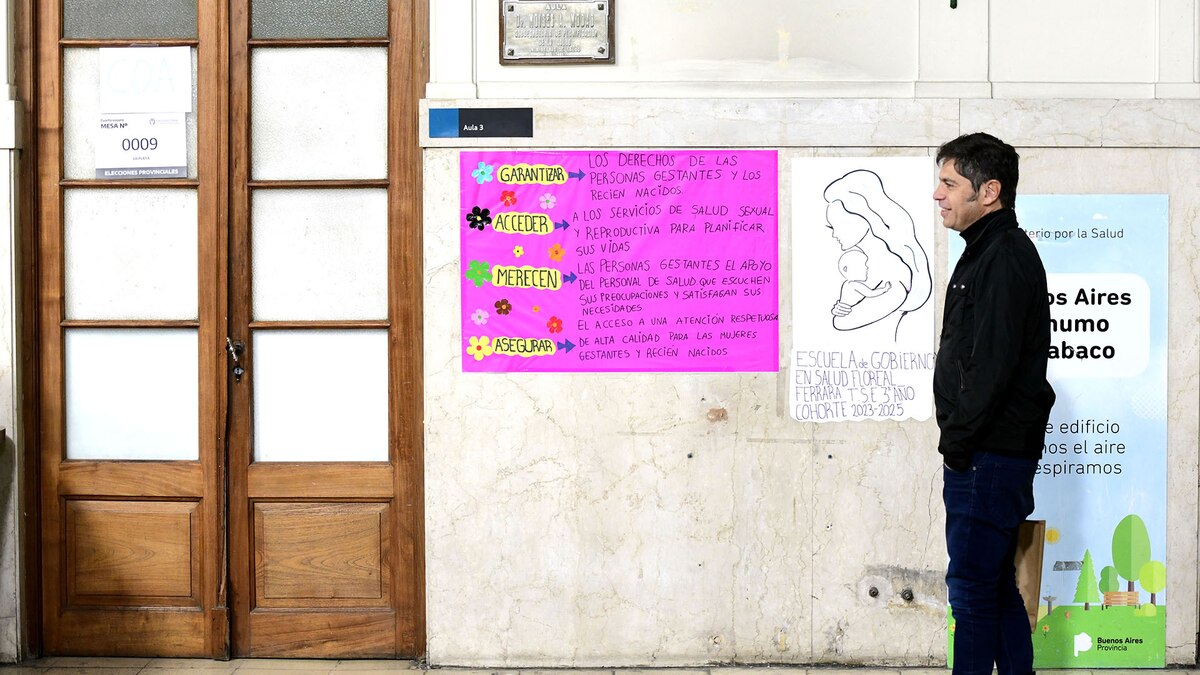 AULA
MESA Nº
0009
LA PLATA
ELECCIONES PROVINCIALES
Aula 3
GARANTIZAR
LOS DERECHOS DE LAS
PERSONAS GESTANTES Y LOS
RECIEN NACIDOS.
ACCEDER
A LOS SERVICIOS DE SALUD SEXUAL
Y REPRODUCTIVA PARA PLANIFICAR
SUS VIDAS
MERECEN
LAS PERSONAS GESTANTES EL APOYO
DEL PERSONAL DE SALUD QUE ESCUCHEN
SUS PREOCUPACIONES Y SATISFAGAN SUS
NECESIDADES.
ASEGURAR
EL ACCESO A UNA ATENCIÓN RESPETUOSA
DE ALTA CALIDAD PARA LAS MUJERES
GESTANTES Y RECIEN NACIDOS
ESCUELA de GOBIERNO
EN SALUD FLOREAL
FERRARA T.S.E 3º AÑO
COHORTE 2023-2025
terio por la Salud
os Aires
humo
abaco
e edificio
mos el aire
espiramos
Buenos Aires
Provincia